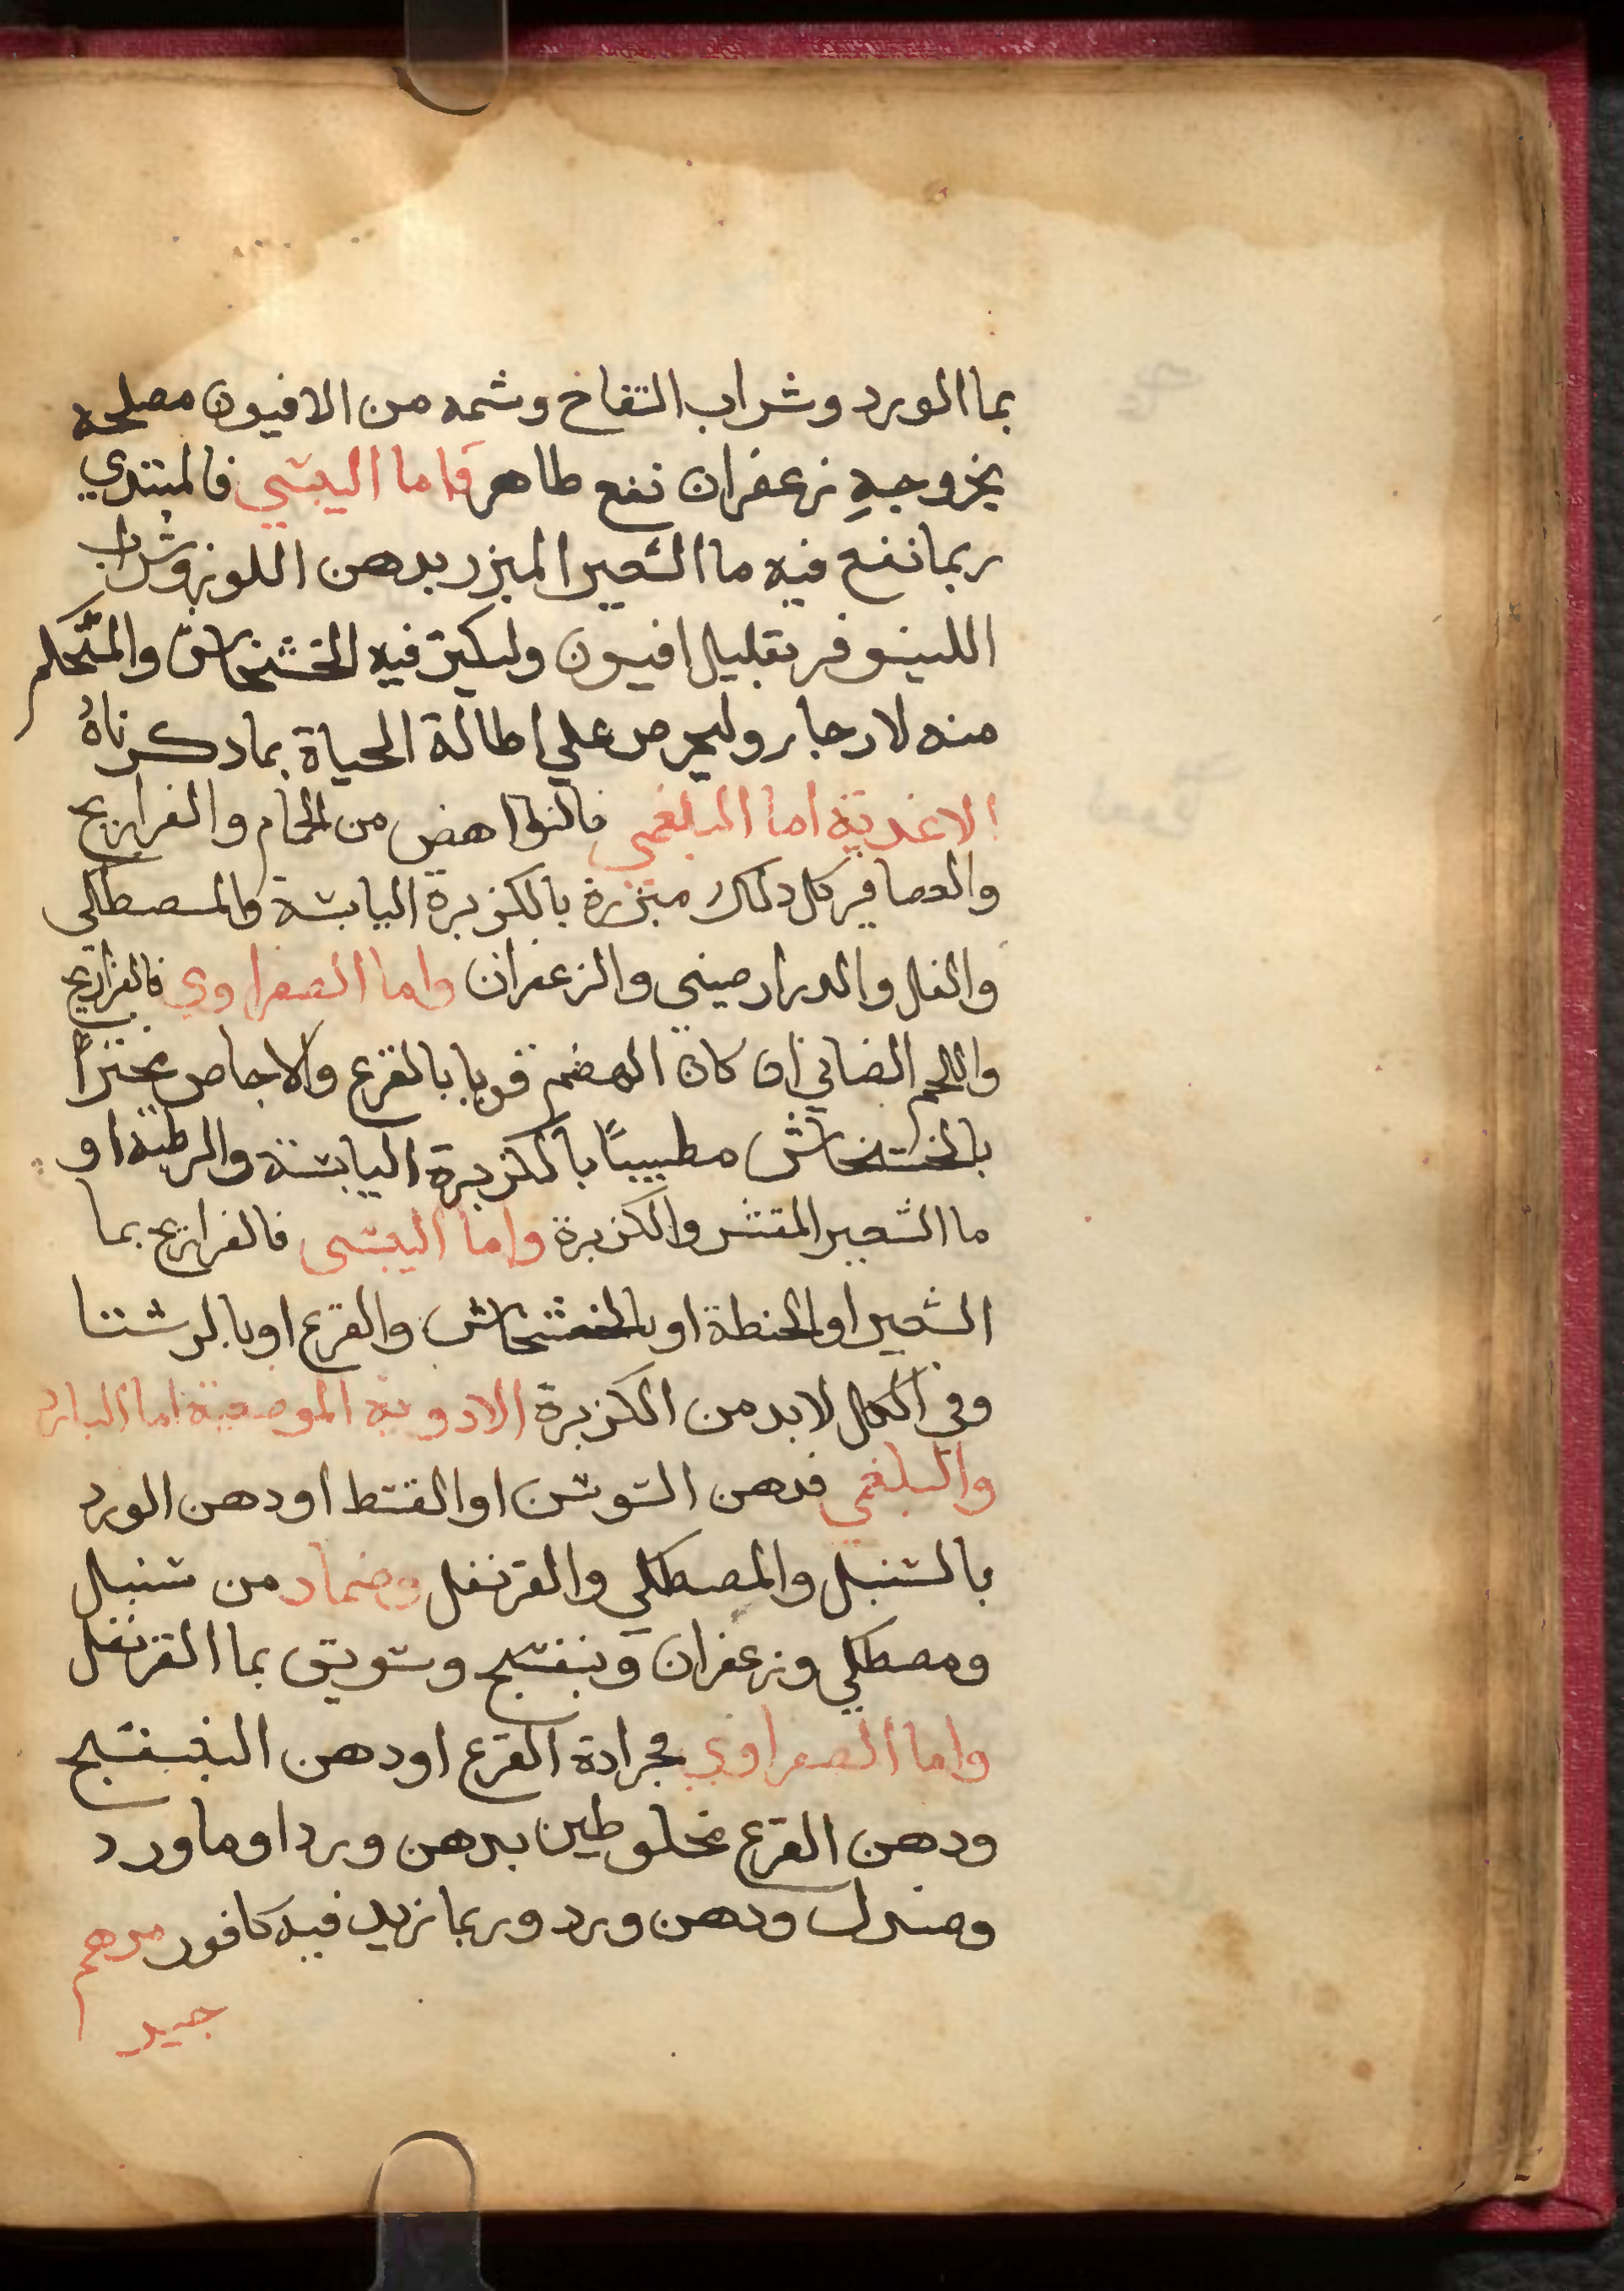 بما الورد وشراب التفاخ وشمه من الافيون مصلحه
بخروجبه زعفران نفع طاهر فاما اليبسي فالمبتدي
ربما نفع فيه ما الشعير المبزر بدهن اللوز وشراب
اللينوفر بقليل افيون وليكثر فيه الخشخاش والمتحكم
منه لا رجا برو ليحرص علي اطالة الحياة بما دكرناهُ
الاغدية اما البلغمي فالنواهض من الحمام والفراريج
والعصافير كل دلك مبزرة بالكزبرة اليابسة والمصطكي
والفلفل والدرارصيني والزعفران واما الصفراوي فالفراريج
واللحم الضاني ان كان الهضم قويا بالقرع والاجاص مختراً
بالخشخاش مطيبًا بالكزبرة اليابسة والرطبة او
ما الشعير المقشر والكزبرة واما اليبسي فالفراريج بما
الشعير او الحنطة او بالخشخاش والقرع او بالرشتا
وفي الكل لابد من الكزبرة الادوية الموضعية اما البارد
والبلغمي فدهن السوسن او القسط او دهن الورد
بالسنبل والمصطكي والقرنفل وضماد من سنبل
ومصطكي وزعفران وبنفسج وسويق بما القرنفل
واما الصفراوي فجرادة القرع او دهن البنفسج
ودهن القرع مخلوطين بدهن ورد او ما ورد
وصندل ودهن ورد وربما زيد فيه كافور مرهم
جيد